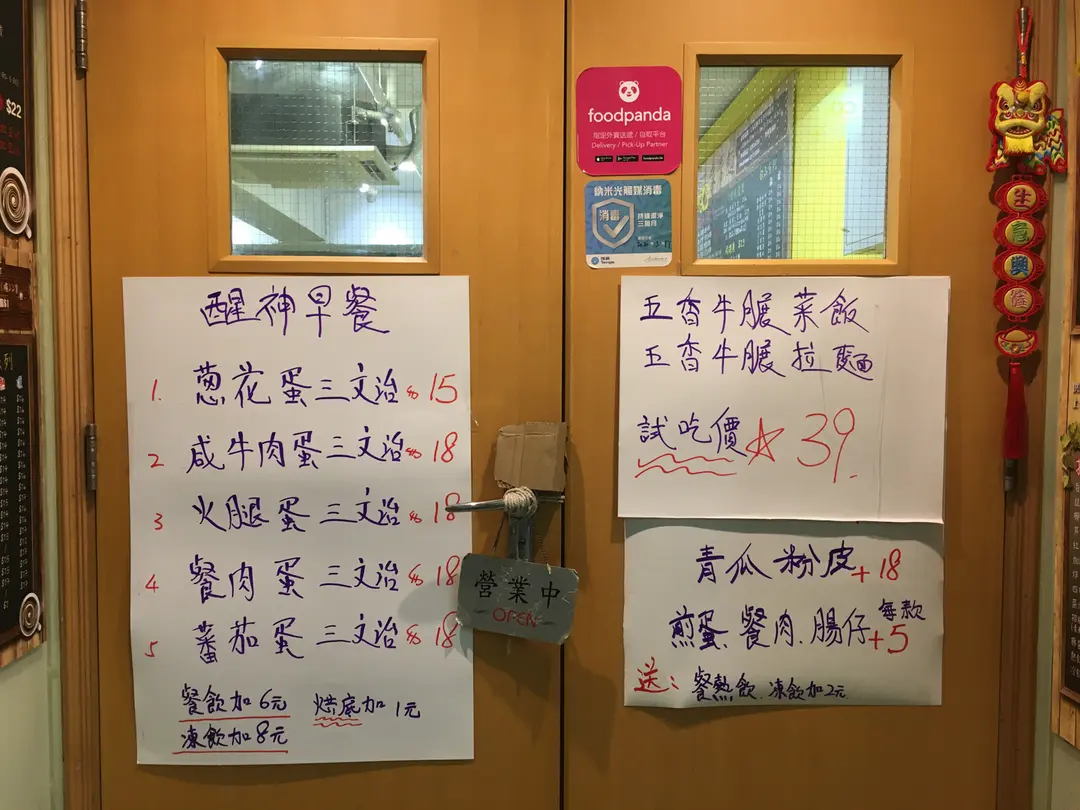 $22
醒神早餐
1. 葱花蛋三文治 $15
2 咸牛肉蛋三文治 $18
3 火腿蛋三文治 $18
4 餐肉蛋三文治 $18
5 蕃茄蛋三文治 $18
餐飲加6元 烘底加1元
凍飲加8元
營業中
OPEN
foodpanda
指定外賣速遞/自取平台
Delivery / Pick-Up Partner
納米光觸媒消毒
消毒
持續潔淨
三個月
五香牛𦟌菜飯
五香牛𦟌拉麵
試吃價 39.
青瓜粉皮+18
煎蛋、餐肉、腸仔 每款+5
送: 餐熱飲 凍飲加2元
生
意
興
隆